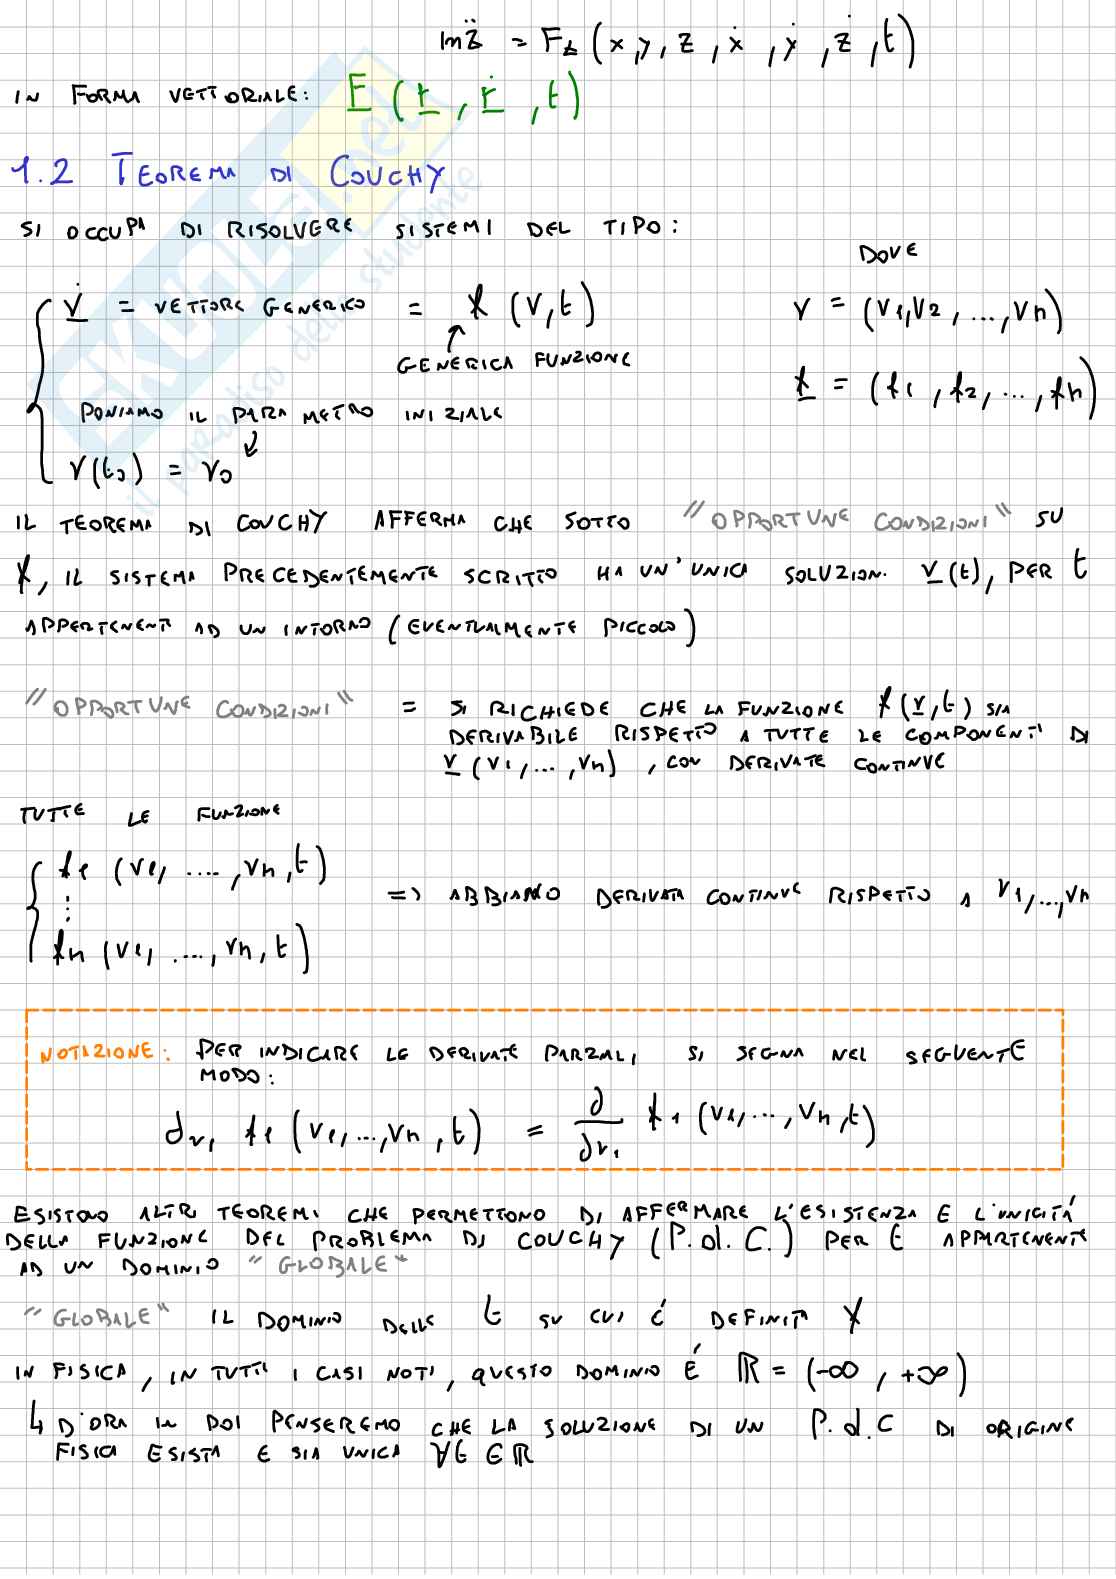 m z̈ = Fz (x, y, z, ẋ, ẏ, ż, t)
IN FORMA VETTORIALE: F (r, ṙ, t)
1.2 TEOREMA DI COUCHY
SI OCCUPA DI RISOLVERE SISTEMI DEL TIPO:
DOVE
v̇ = VETTORE GENERICO = f (v, t)
v = (v1, v2, ..., vn)
GENERICA FUNZIONE
f = (f1, f2, ..., fn)
PONIAMO IL PARAMETRO INIZIALE
v(t0) = v0
IL TEOREMA DI COUCHY AFFERMA CHE SOTTO "OPPORTUNE CONDIZIONI" SU
f, IL SISTEMA PRECEDENTEMENTE SCRITTO HA UN'UNICA SOLUZION. v(t), PER t
APPERTENENTI AD UN INTORNO (EVENTUALMENTE PICCOLO)
"OPPORTUNE CONDIZIONI" = SI RICHIEDE CHE LA FUNZIONE f(v, t) SIA
DERIVABILE RISPETTO A TUTTE LE COMPONENTI DI
v (v1, ..., vn), CON DERIVATE CONTINUE
TUTTE LE FUNZIONE
f1 (v1, ...., vn, t)
⋮
=> ABBIAMO DERIVATA CONTINUE RISPETTO A v1, ..., vn
fn (v1, ..., vn, t)
NOTAZIONE: PER INDICARE LE DERIVATE PARZIALI, SI SEGNA NEL SEGUENTE
MODO:
∂v1 f1 (v1, ..., vn, t) = ∂/∂v1 f1 (v1, ..., vn, t)
ESISTONO ALTRI TEOREMI CHE PERMETTONO DI AFFERMARE L'ESISTENZA E L'UNICITÁ
DELLA FUNZIONE DEL PROBLEMA DI COUCHY (P.d.C.) PER t APPARTENENTE
AD UN DOMINIO "GLOBALE"
"GLOBALE" IL DOMINIO DELLE t SU CUI É DEFINITA f
IN FISICA, IN TUTTI I CASI NOTI, QUESTO DOMINIO É ℝ = (-∞, +∞)
↳ D'ORA IN POI PENSEREMO CHE LA SOLUZIONE DI UN P.d.C DI ORIGINE
FISICA ESISTA E SIA UNICA ∀t ∈ ℝ
SKUOLA.net
il paradiso dello studente